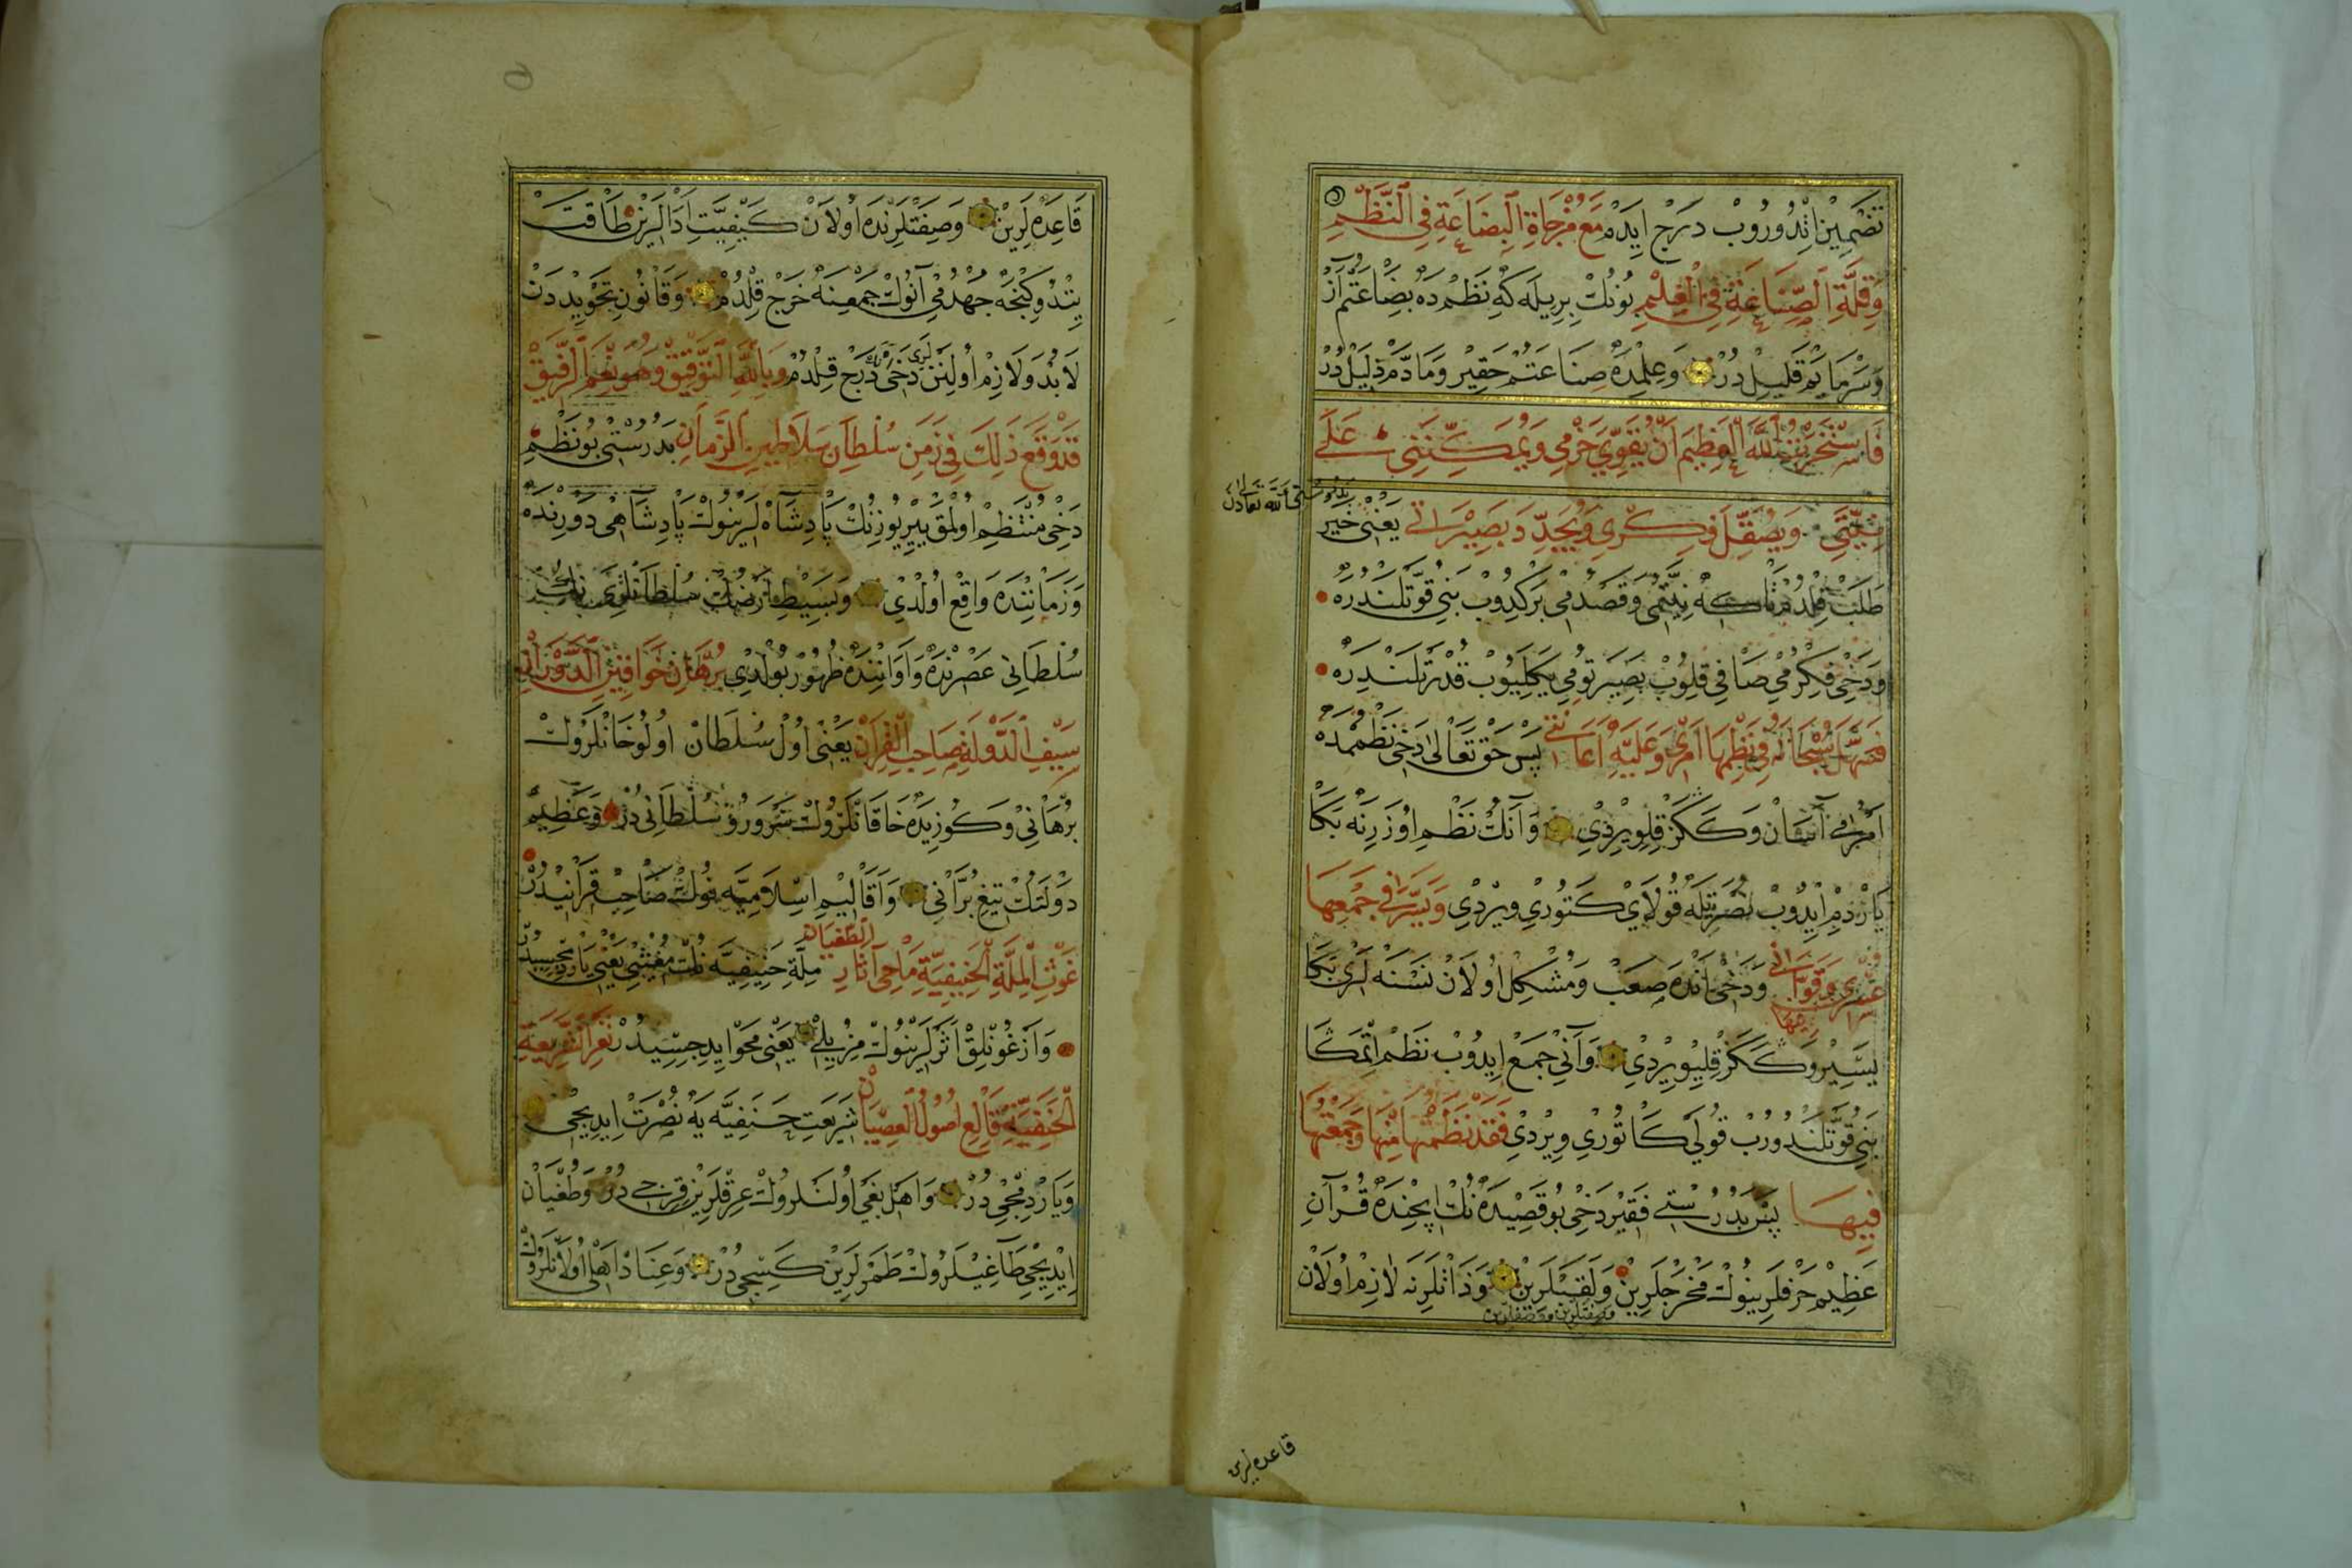 تَضْمِينْ اِتْدُورُوبْ دَرْج اِيدَمْ مَعَ مُزْجَاةِ الْبِضَاعَةِ فِي النَّظْمِ
وَقِلَّةِ الصِّنَاعَةِ فِي الْعِلْمِ بُونُكْ بِرِيلَه كِه نَظْمْدَه بِضَاعَتُمْ اَزْ
وَسَرْمَايَمْ قَلِيلْ دُرْ وَعِلِمْدَه صِنَاعَتُمْ حَقِيرْ وَمَادَّمْ ذَلِيلْ دُرْ
فَاسْتَخَرْتُ اللّٰهَ الْعَظِيمَ اَنْ يُقَوِّيَ حَزْمِي وَيُمَكِّنَنِي عَلَى
نِيَّتِي وَيُصَقِّلَ فِكْرِي وَيُحَدِّدَ بَصِيرَاتِي يَعْنِي خَيْر
بدرستى الله تعالىدن
طَلَبْ قِلْدُمْ تَاكِه نِيَّتُمِي وَقَصْدُمِي بَرْكِدُوبْ بَنِي قُوَّتْلَنْدُرَه
وَدَخِي فِكْرُمِي صَافِي قِلُوبْ بَصِيرَتُومِي يَكِلِيُوبْ قُدْرَتْلَنْدِرَه
فَسَهَّلَ سُبْحَانَهُ فِي نَظْمِهَا اَمْرِي وَعَلَيْهِ اَعَانَنِي پَسْ حَقْ تَعَالٰى دَخِي نَظْمُمْدَه
اَمْرُمِي آسَانْ وَكَكَزْ قِلِوِيرْدِي وَآنُكْ نَظْمِ اُوزَرِنَه بَكَا
يَارْدِمْ اِيدُوبْ نُصْرَتِيلَه قُولَايْ كَتُورِي وِيرْدِي وَيَسَّرَ فِي جَمْعِهَا
عُسْرِي وَقَوَّانِي وَدَخِي اَنْدَه صَعَبْ وَمُشْكِلْ اُولَانْ نَسْنَه لَرِي بَكَا
يَسِيرْ وَكَكَزْ قِلِيُوِيرْدِي وَآنِي جَمْعْ اِيدُوبْ نَظْمْ اِتْمَكَا
بَنِي قُوَّتْلَنْدُورُبْ قُولَي كَاتُورِي وِيرْدِي فَقَدْ نَظَمْتُهَا مِنْهَا وَجَمَعْتُهَا
فِيهَا پَسْ بَدُرُسْتِي فَقِيرْ دَخِي بُو قَصِيدَه نُكْ اِيچِنْدَه قُرْآنِ
عَظِيمْ حَرْفْلَرِينُوكْ مَخْرَجْلَرِينْ وَلَقَبْلَرِينْ وَذَاتْلَرِنَه لَازِمْ اُولَانْ
قاعده لرين
قَاعِدَه لَرِينْ وَصِفَتْلَرِنْدَه اُولَانْ كَيْفِيَّتِ اَدَالَرِينْ طَاقَتْ
يِتْدُوكِنْجَه جَهْدُمِي آنُوكْ جَمْعِنَه خَرْج قِلْدُمْ وَقَانُونِ تَجْوِيدْدَنْ
لَابُدْ وَلَازِمْ اُولَنْلَرِي دَخِي دَرْج قِلْدُمْ وَبِاللّٰهِ التَّوْفِيقُ وَهُوَ نِعْمَ الرَّفِيقُ
قَدْ وَقَعَ ذَلِكَ فِي زَمَنِ سُلْطَانِ سَلَاطِينِ الزَّمَانِ بَدُرُسْتِي بُو نَظْمِ
دَخِي مُنْتَظِمْ اُولْمَقْ يِيرْيُوزِنِكْ پَادِشَاهْلَرِينُوكْ پَادِشَاهِي دَوْرِنْدَه
وَزَمَانِنْدَه وَاقِعْ اُولْدِي وَبَسِيطِ اَرْضُكْ سُلْطَانْلَرِي نُكْ
سُلْطَانِي عَصْرِنْدَه وَاَوَانِنْدَه ظُهُورْ بُولْدِي بُرْهَانِ خَوَاقِينِ الدَّوْرَانِ
سَيْفِ الدَّوْلَةِ صَاحِبِ الْقِرَانِ يَعْنِي اُولْ سُلْطَانْ اُولُو خَانْلَرُوكْ
بُرْهَانِي وَكُوزِيدَه خَاقَانْلَرُوكْ سَرْوَرُو سُلْطَانِي دُرْ وَعَظِيمْ
دَوْلَتُكْ تِيغِ بُرَّانِي وَاَقَالِيمِ اِسْلَامِيَّه نُوكْ صَاحِبْ قِرَانِيدُرْ
غَوْثِ الْمِلَّةِ الْحَنِيفِيَّةِ مَاحِي آثَارِ الطُّغْيَانِ مِلَّةِ حَنِيفِيَّه نُكْ مُغِيثِي يَعْنِي يَارْدِمْجِيسِيدُرْ
وَاَزْغُونْلِقْ اَثَرْلَرِينُوكْ مُزِيلِي يَعْنِي مَحْو اِيدِجِسِيدُرْ نَصْرِ الشَّرِيعَةِ
الْحَنَفِيَّةِ قَالِعِ اُصُولِ الْعِصْيَانِ شَرِيعَتِ حَنَفِيَّه يَه نُصْرَتْ اِيدِيجِي
وَيَارْدِمْجِي دُرْ وَاَهْلِ بَغْي اُولَنْلَرُوكْ عِرْقْلَرِينْ قِرِيجِي دُرْ وَطُغْيَانْ
اِيدِيجِي طَاغِيلَرُوكْ طَمَرْلَرِينْ كَسِيجِي دُرْ وَعِنَادْ اَهْلِ اُولَانْلَرُوكْ